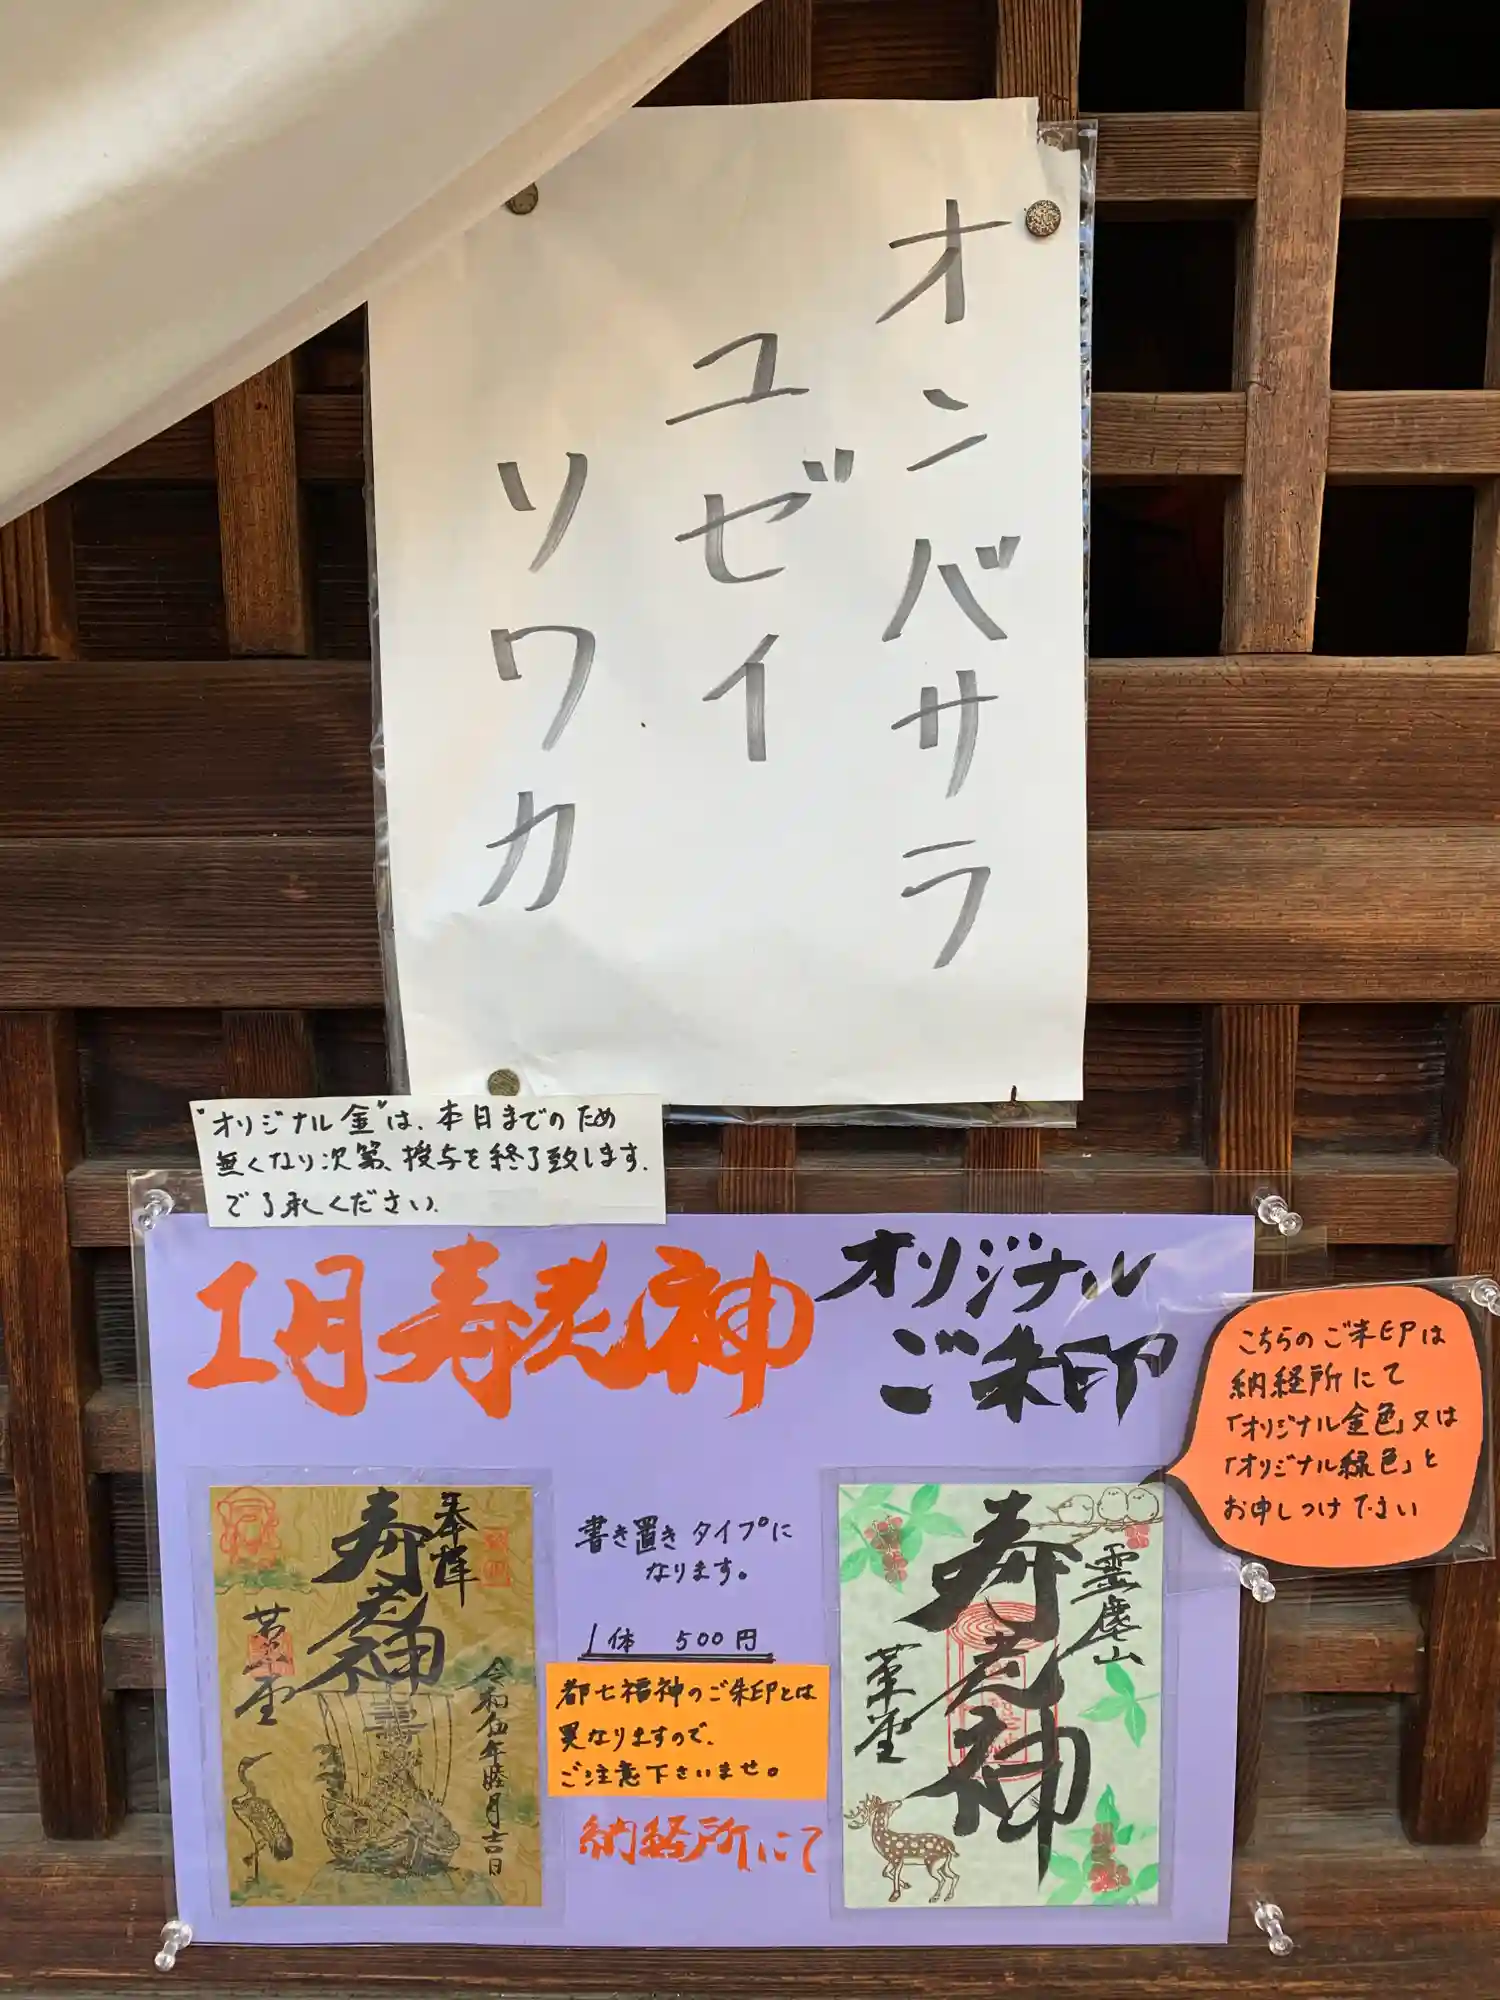 オンバサラ
ユゼイ
ソワカ
"オリジナル金"は、本日までのため
無くなり次第、授与を終了致します。
ご了承ください。
1月寿老神
オリジナル
ご朱印
こちらのご朱印は
納経所にて
「オリジナル金色」又は
「オリジナル緑色」と
お申しつけ下さい
奉拝
寿老神
革堂
令和伍年睦月吉日
書き置きタイプに
なります。
1体 500円
都七福神のご朱印とは
異なりますので、
ご注意下さいませ。
納経所にて
霊麀山
寿老神
革堂